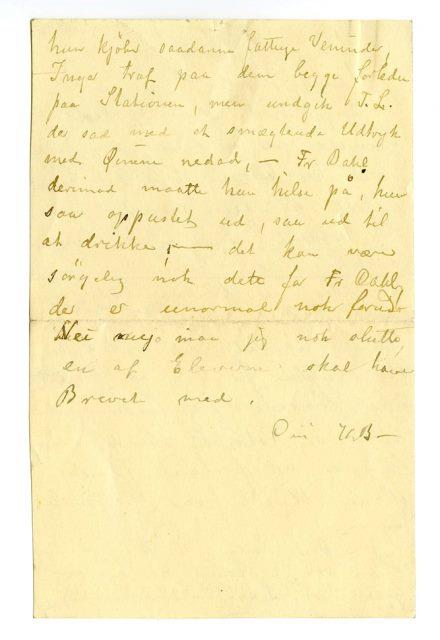 hun kjöbr saadanne fattige Veninder,
Inga traf paa dem begge forleden
paa Stationen, men undgik T. L.
der sad med et smægtende Udtryk
med Öinene nedad, — Fr Dahl
derimod maatte hun hilse på, hun
saa oppustet ud, saa ud til
at drikke, — det kan være
sörgelig nok dette for Fr Dahl,
der er unormal nok forud
Nei maa jeg nok slutte,
en af Eleverne skal have
Brevet med.
Din